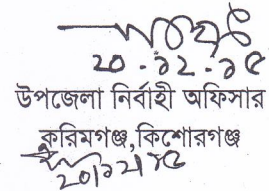 ২০.১২.১৫
উপজেলা নির্বাহী অফিসার
করিমগঞ্জ,কিশোরগঞ্জ
২০/১২/১৫